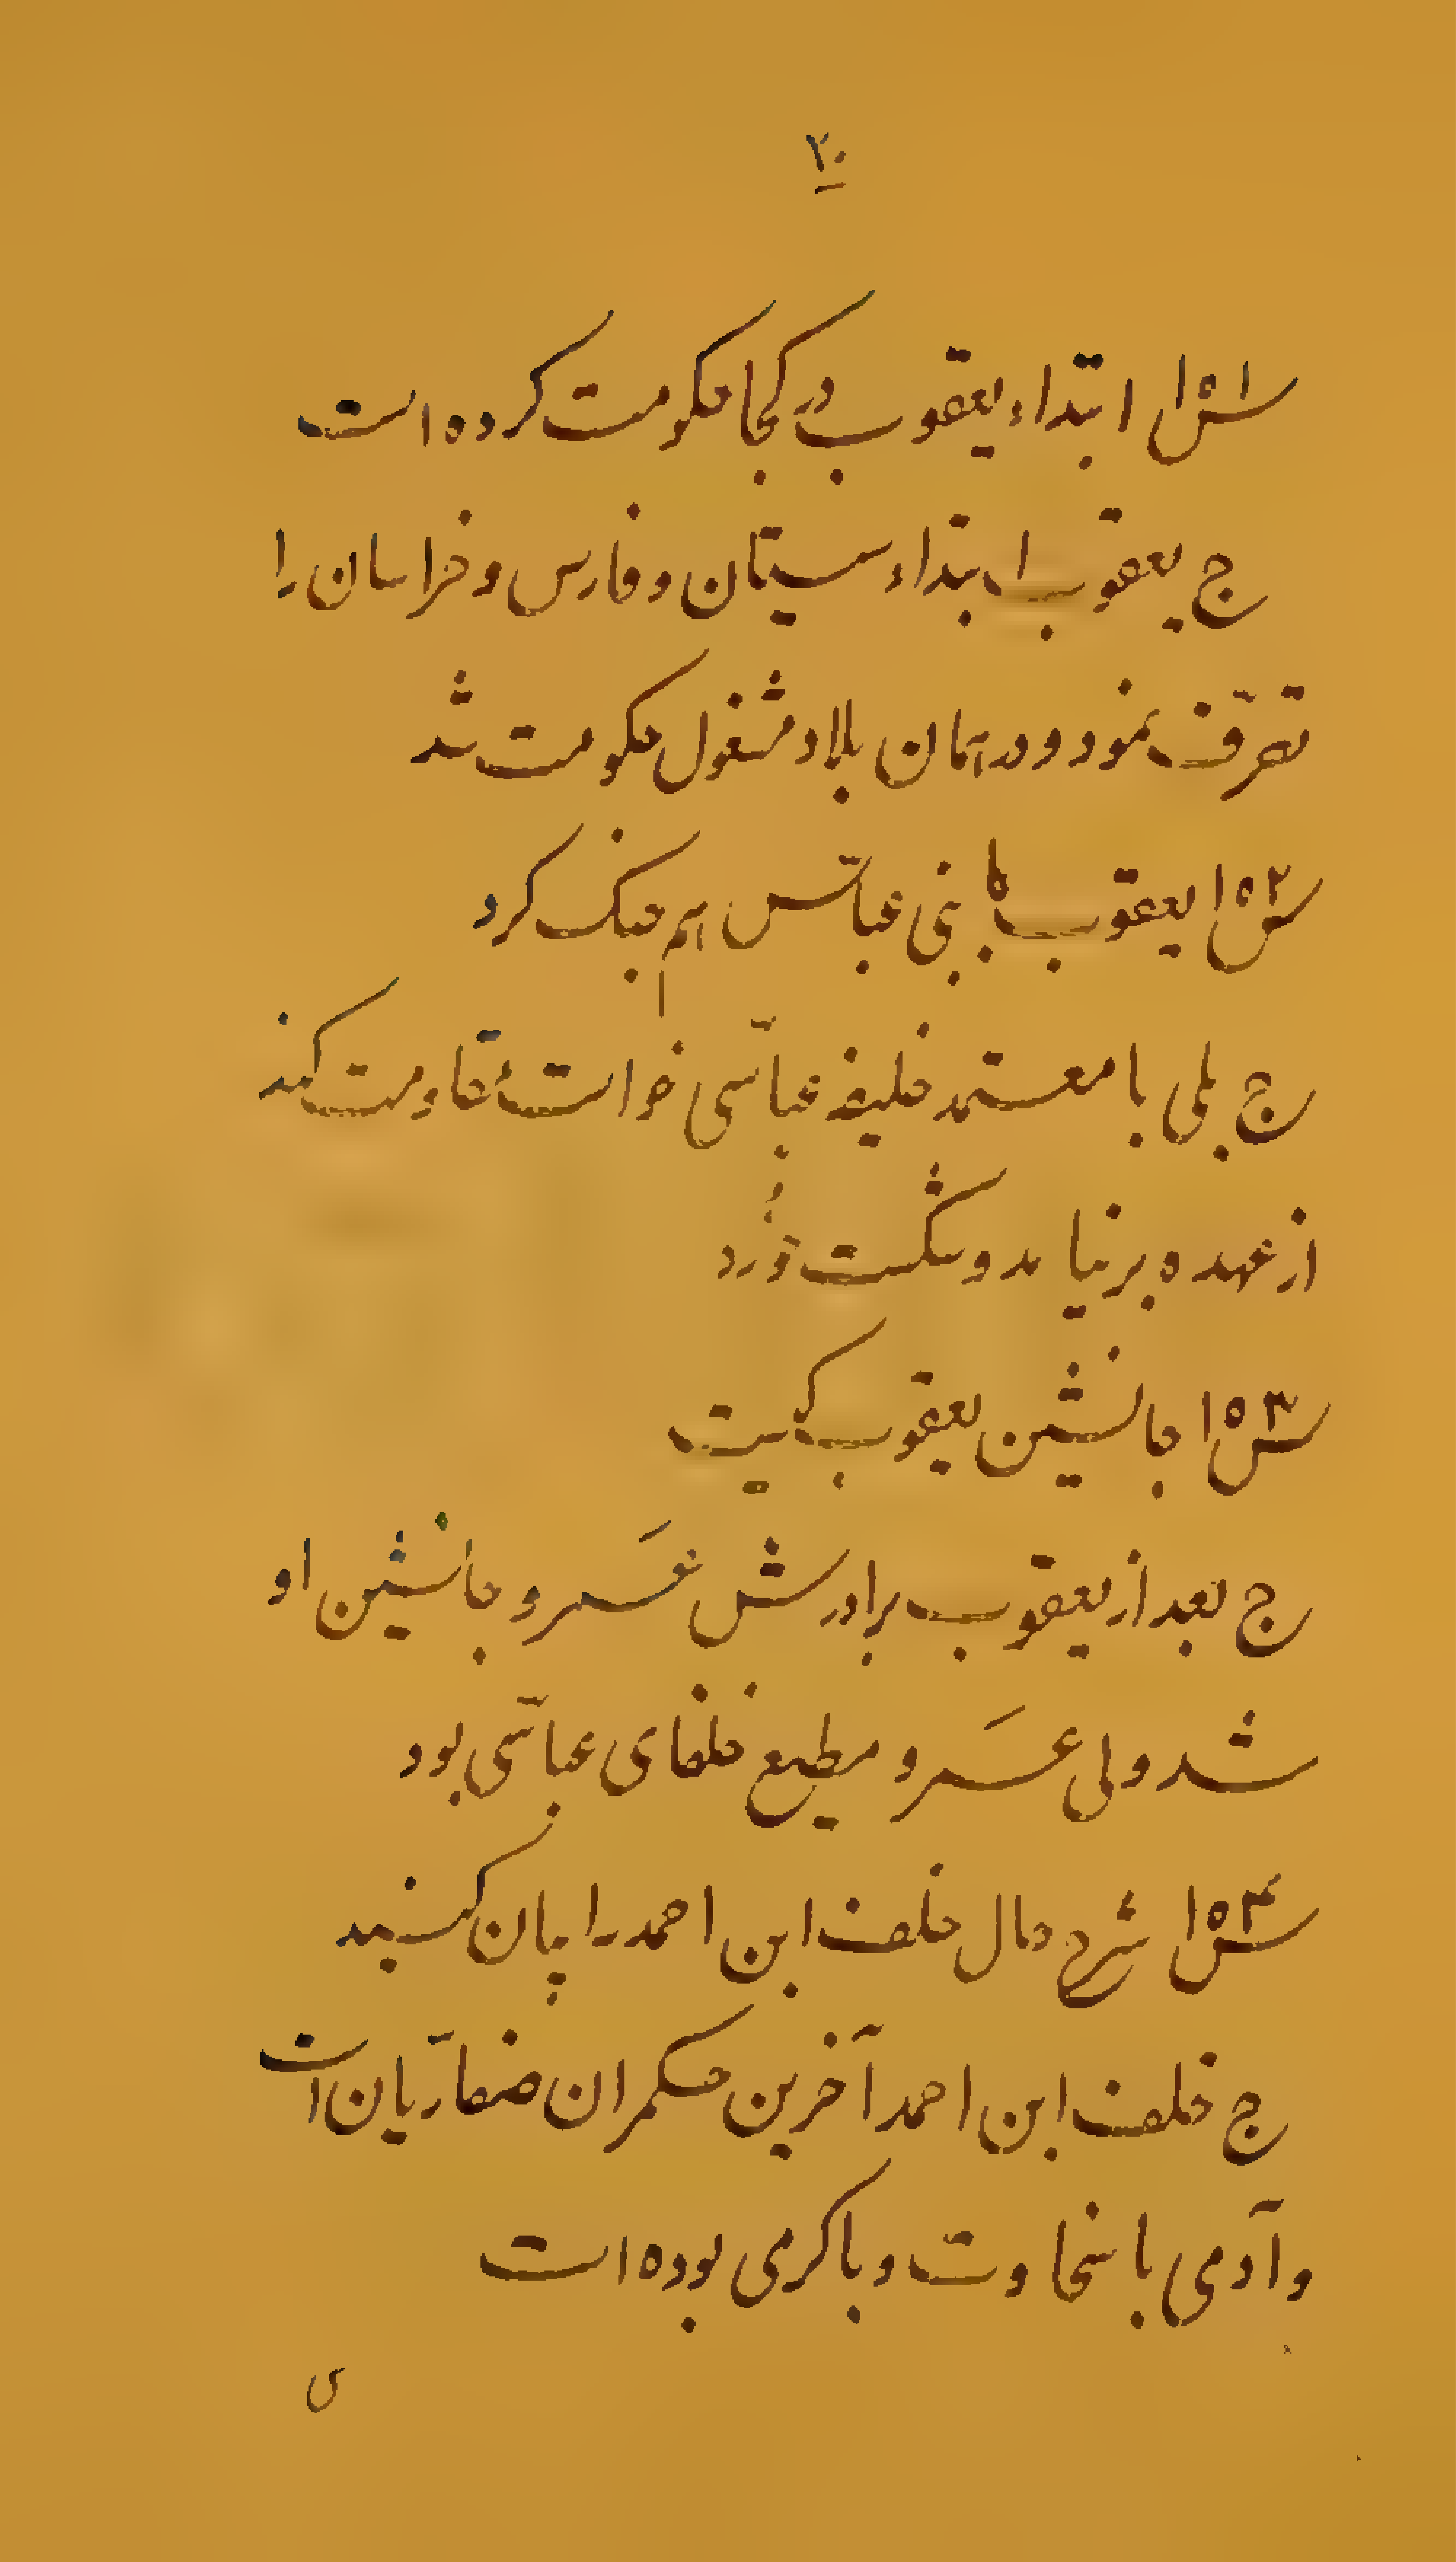 ۲۰
س۱۵۱ ابتداء یعقوب در کجا حکومت کرده است
ج یعقوب ابتداء سیستان و فارس و خراسان را
تصرّف نمود و در همان بلاد مشغول حکومت شد
س۱۵۲ یعقوب با بنی عباّس هم جنک کرد
ج بلی با معتمد خلیفه عباّسی خواست مقاومت کند
از عهده بر نیامد و شکست خورد
س۱۵۳ جانشین یعقوب کیست
ج بعد از یعقوب برادرش عَمرو جانشین او
شد ولی عَمرو مطیع خلفای عباّسی بود
س۱۵۴ شرح حال خلف ابن احمد را بیان کنید
ج خلف ابن احمد آخرین حکمران صفّاریان است
و آدمی با سخاوت و با کرمی بوده است
س